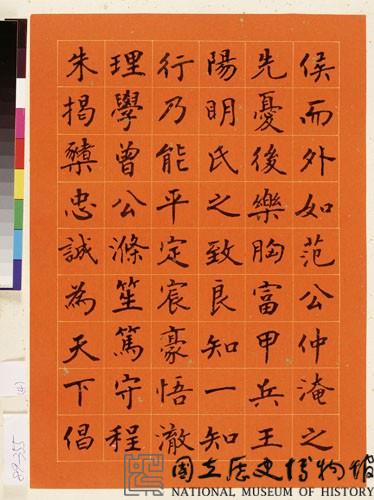 侯而外如范公仲淹之
先憂後樂胸富甲兵王
陽明氏之致良知一知
行乃能平定宸豪悟澈
理學曾公滌笙篤守程
朱揭櫫忠誠為天下倡
(4)
89-355
國立歷史博物館
NATIONAL MUSEUM OF HISTORY